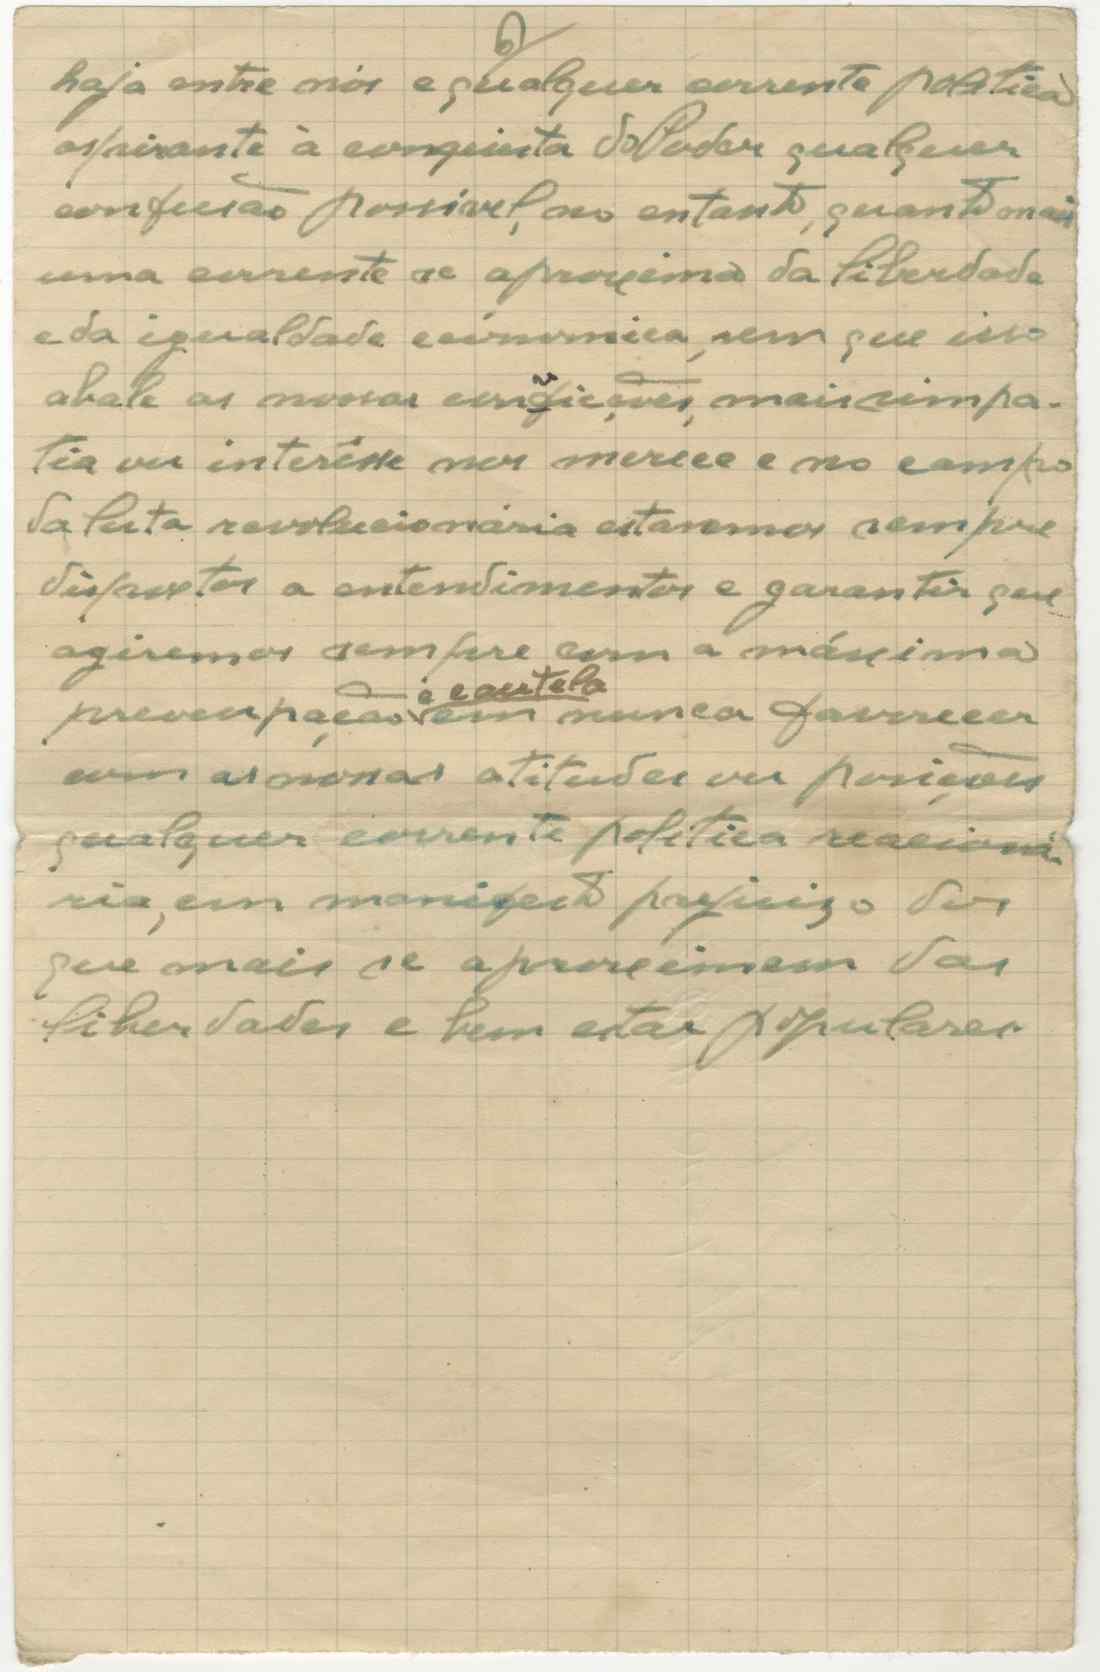 6)
haja entre nós e qualquer corrente politica
aspirante à conquista do Poder qualquer
confusão possivel, no entanto, quanto mais
uma corrente se aproxima da liberdade
e da igualdade económica, sem que isso
abale as nossas convicções, mais simpa-
tia ou interêsse nos merece e no campo
da luta revolucionária estaremos sempre
dispostos a entendimentos e garantir que
agiremos sempre com a máxima
preocupação e cautela em nunca favorecer
com as nossas atitudes ou posições
qualquer corrente politica reacioná-
ria, em manifesto prejuizo dos
que mais se aproximem das
liberdades e bem estar populares.